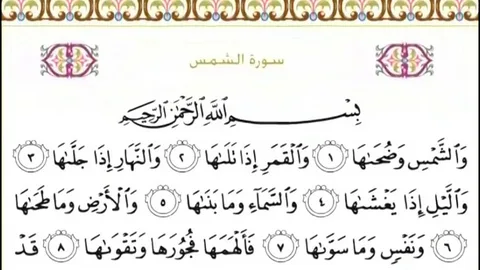 سورة الشمس
بِسْمِ اللَّهِ الرَّحْمَٰنِ الرَّحِيمِ
وَالشَّمْسِ وَضُحَاهَا ١ وَالْقَمَرِ إِذَا تَلَاهَا ٢ وَالنَّهَارِ إِذَا جَلَّاهَا ٣
وَاللَّيْلِ إِذَا يَغْشَاهَا ٤ وَالسَّمَاءِ وَمَا بَنَاهَا ٥ وَالْأَرْضِ وَمَا طَحَاهَا
٦ وَنَفْسٍ وَمَا سَوَّاهَا ٧ فَأَلْهَمَهَا فُجُورَهَا وَتَقْوَاهَا ٨ قَدْ